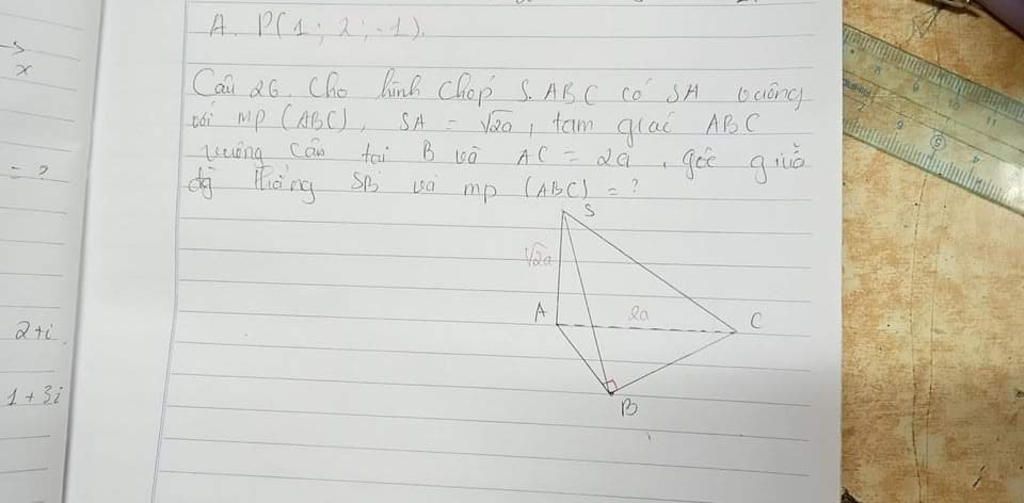 A. P(1; 2; -1).
x
Câu 26. Cho hình chóp S.ABC có SA vuông
với mp (ABC), SA = √2a, tam giác ABC
= ?
vuông cân tại B và AC = 2a, góc giữa
đg thẳng SB và mp (ABC) = ?
S
√2a
A
2a
C
2+i
1+3i
B